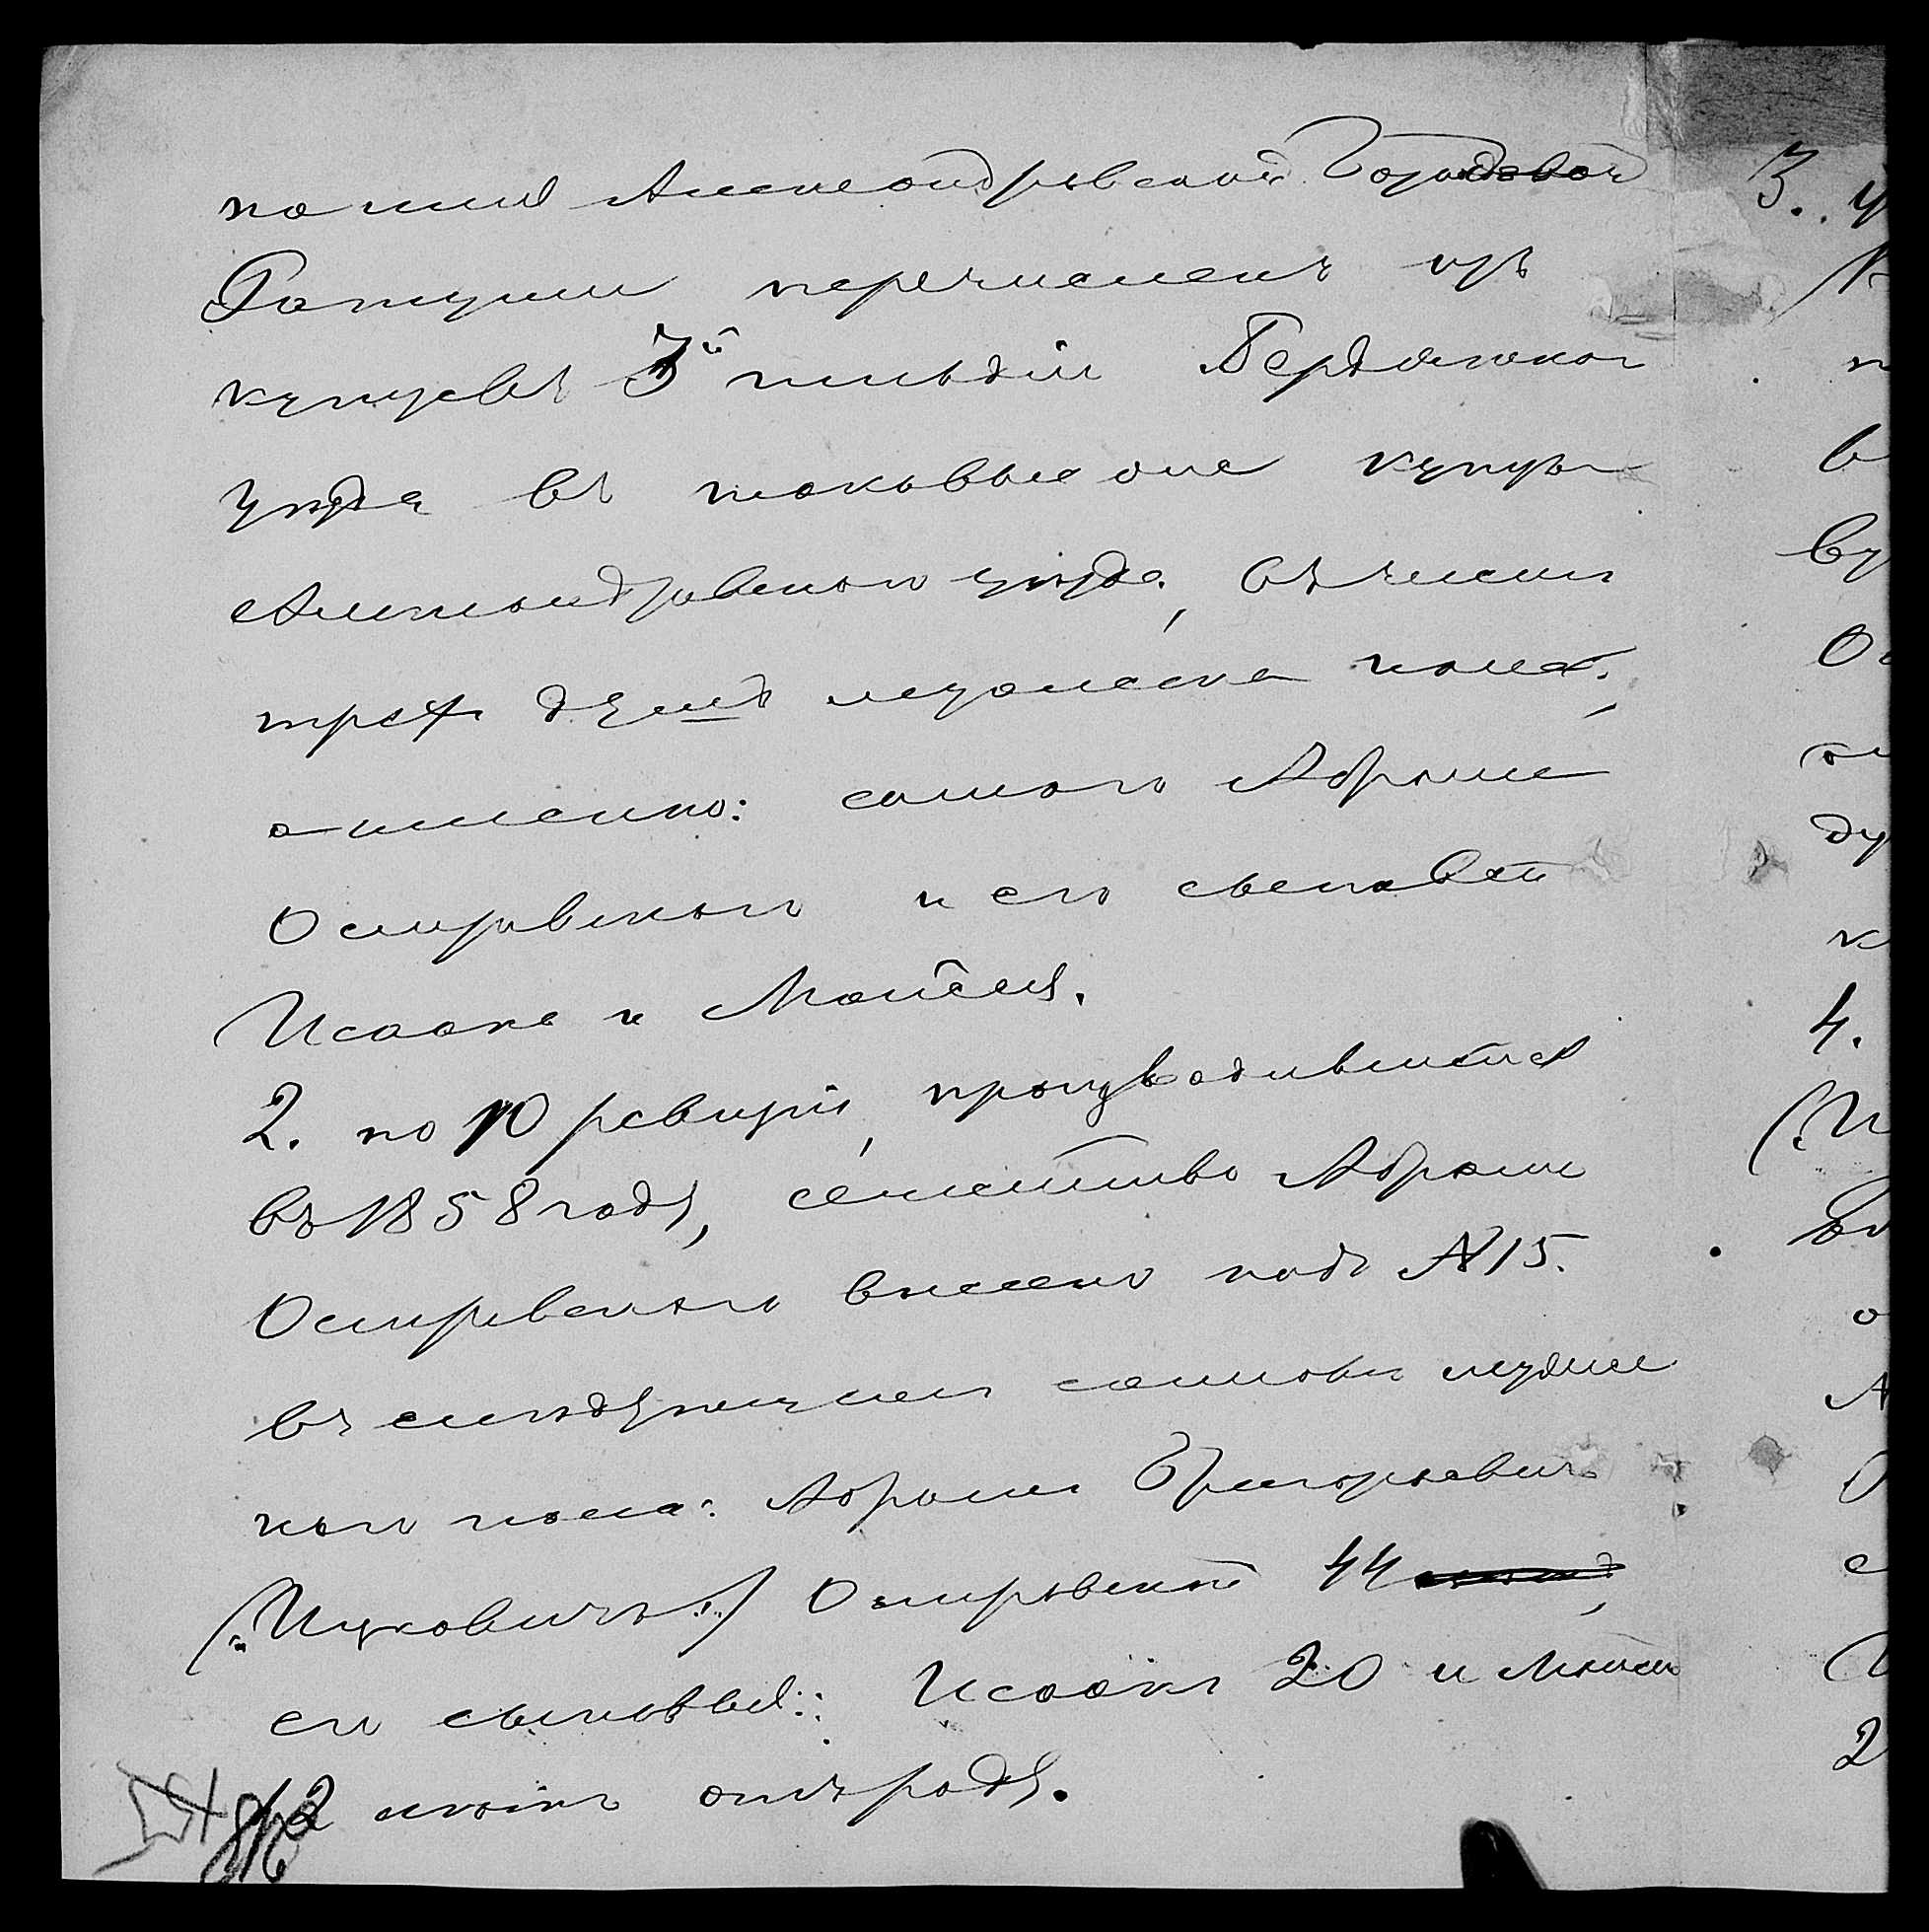 на имя Александровской Городовой
Ратуши перечисленъ изъ
купцовъ 3й гильдіи Бердянскаго
уѣзда въ таковые же купцы
Александровскаго уѣзда, въ числѣ
трехъ душъ мужеска пола,
а именно: самого Абрама
Островскаго и его сыновей
Исаака и Моисея.
2. по 10 ревизіи, производившейся
въ 1858 году, семейство Абрама
Островскаго внесено подъ №15.
въ слѣдующемъ составѣ мужес
каго пола: Абрамъ Григорьевичъ
(:Ицковичъ:) Островскій 44,
его сыновья: Исаакъ 20 и Моисей
12 лѣтъ отъ роду.
3.
4.